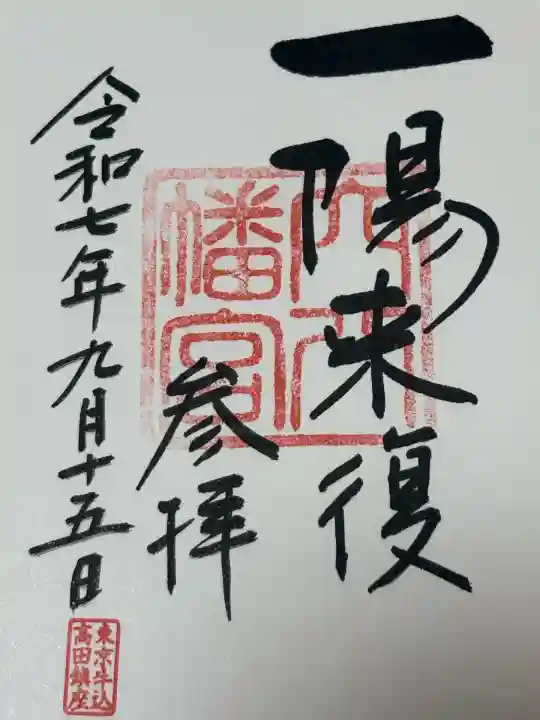 一陽来復
参拝
令和七年九月十五日
穴八
幡宮
東京牛込
高田鎮座